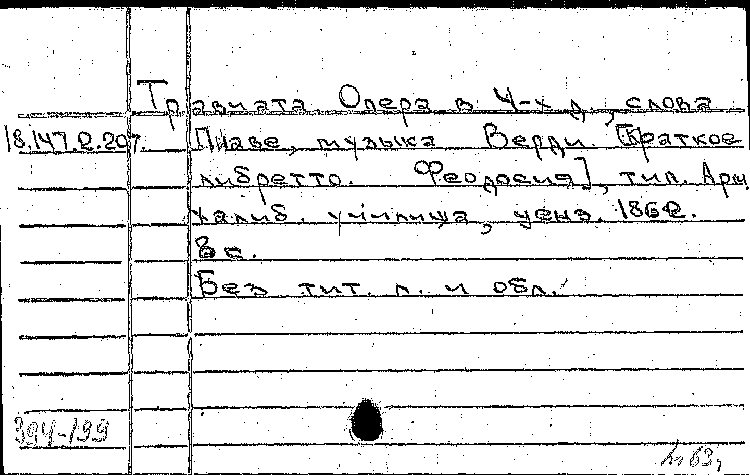 Травиата. Опера в 4-х д., слова
18.147.2.207. Пиаве, музыка Верди. [Краткое
либретто. Феодосия], тип. Арм.
Халиб. училища, ценз. 1862.
8 с.
Без тит. л. и обл.
394-199
63г